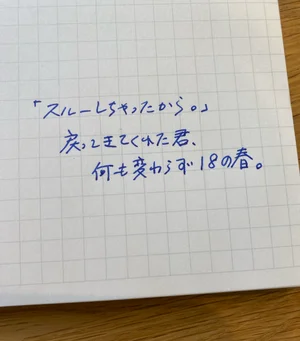 「スルーしちゃったから。」
戻ってきてくれた君、
何も変わらず18の春。